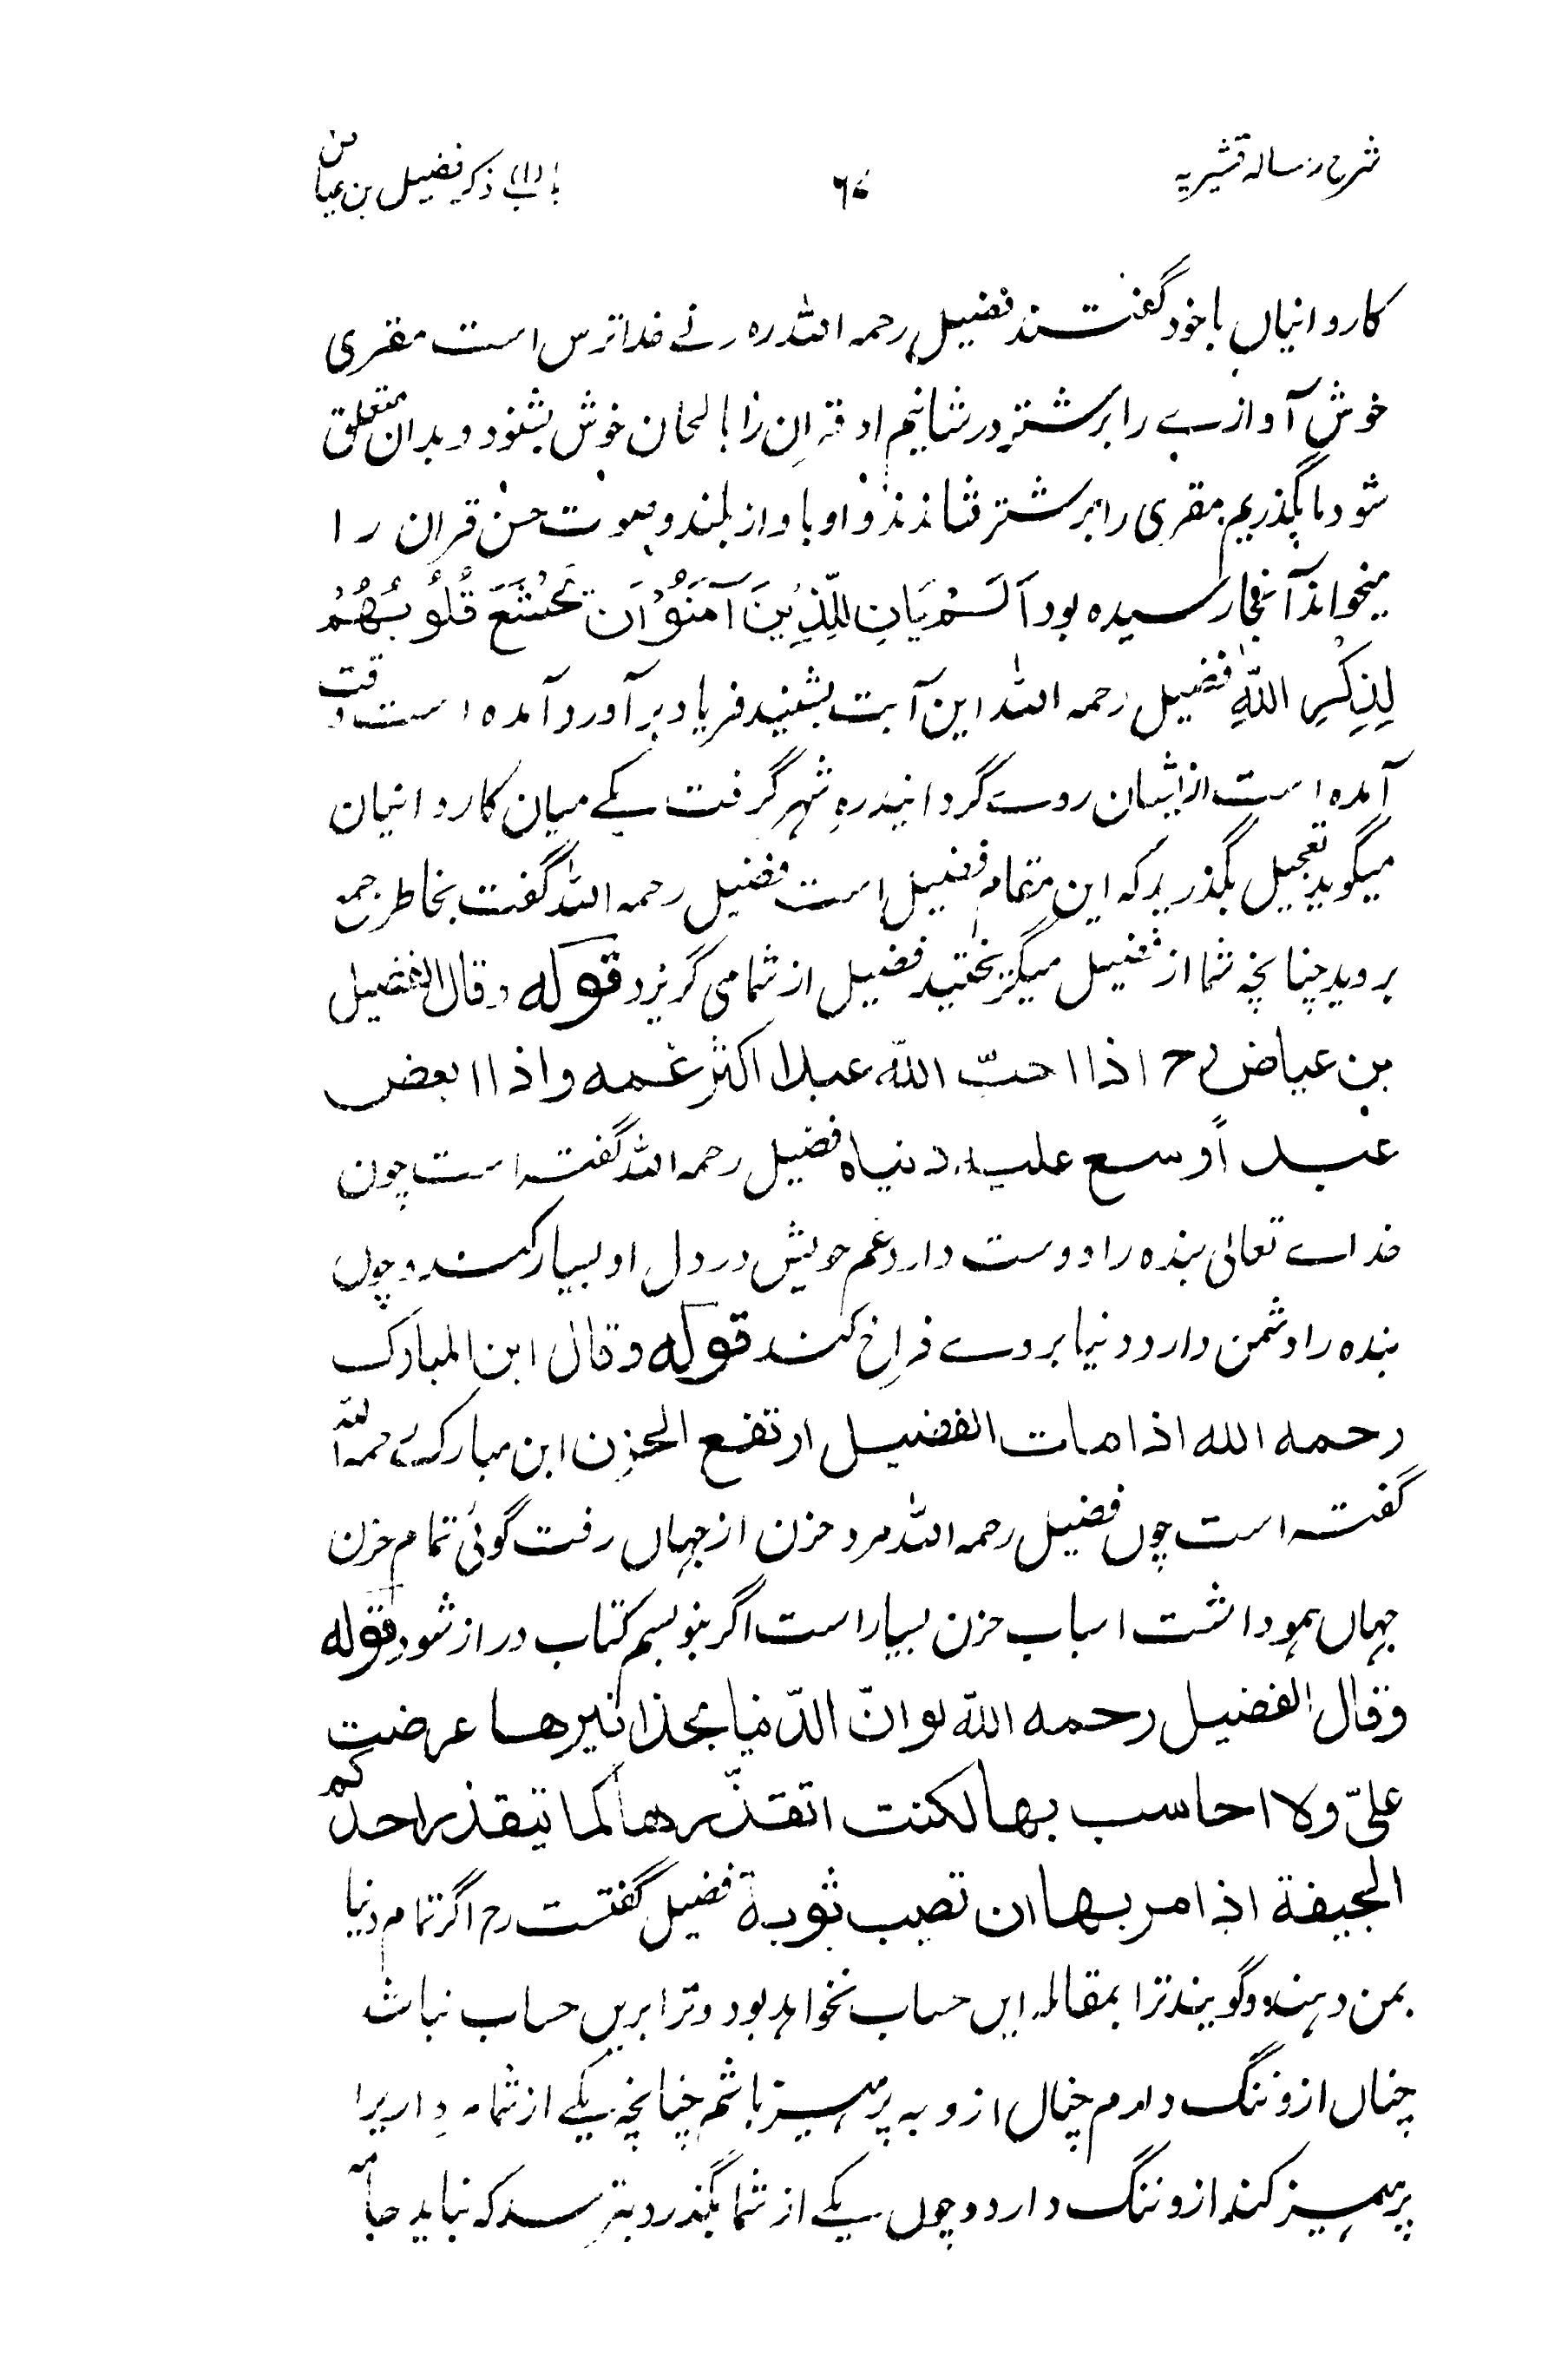 شرح رسالہ قشیریہ ٦٤ باب (۱) ذکر فضیل بن عیاض
کاروانیاں باخود گفتند فضیل رحمہ اللہ رہ زنے خداترس است مقری
خوش آوازے را بر شتر درشانیم او قرآن را بالحان خوش بشنود و بدان متعلق
شود ما بگذریم مقری را بر شتر نشاندند و او باواز بلند و بصوت حسن قران را
میخواند آنجا رسیده بود اَلَمْ یَانِ لِلَّذِیْنَ آمَنُوْا اَنْ تَخْشَعَ قُلُوْبُهُمْ
لِذِکْرِ اللّٰہِ فضیل رحمہ اللہ این آیت بشنید فریاد برآورد آمده است وقت
آمده است از ایشان روے گردانید ره شہر گرفت یکے میان کاروانیان
میگوید تعجیل بگذرید کہ این مقام فضیل است فضیل رحمہ اللہ گفت بخاطر جمع
بروید چنانچہ شما از فضیل میگریختید فضیل از شما می گریزد قولہ وقال الفضیل
بن عیاض رح اذا احبّ اللّٰه عبدا اکثر غمه واذا ابغض
عبداً وسع علیه دنیاه فضیل رحمہ اللہ گفتہ است چون
خداے تعالیٰ بنده را دوست دارد غم خویش در دل او بسیار کند و چوں
بنده را دشمن دارد دنیا بروے فراخ کند قوله وقال ابن المبارک
رحمه الله اذا مات الفضیل ارتفع الحزن ابن مبارک رحمہ اللہ
گفتہ است چوں فضیل رحمہ اللہ مرد حزن از جہاں رفت گوئی تمام حزن
جہاں ہمو داشت اسباب حزن بسیار است اگر بنویسم کتاب دراز شود قوله
وقال الفضیل رحمه اللّٰه لو انّ الدّنیا بحذافیرها عرضت
علیّ ولا احاسب بها لکنت اتقذّرها کما یتقذر احدکم
الجیفة اذا مر بها ان تصیب ثوبه فضیل گفتست رح اگر تمام دنیا
بمن دہند و گویند ترا بمقابلہ ایں حساب نخواہد بود و ترا بریں حساب نباشد
چناں ازو ننگ دارم چناں ازو بہ پرہیز باشم چنانچہ یکے از شما مردار را
پرہیز کند ازو ننگ دارد و چوں یکے از شما بگذرد بترسد کہ نباید جامہ